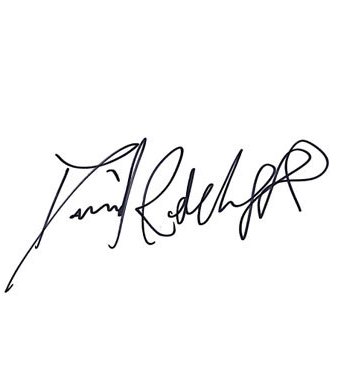 Daniel Radcliffe